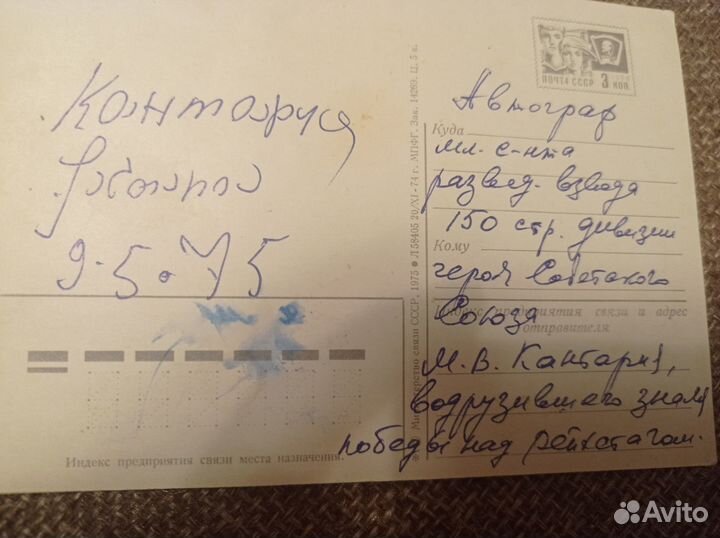 Кантария
9.5.75
ПОЧТА СССР 3 коп.
Автограф
Куда
мл. с-нта
развед. взвода
150 стр. дивизии
Кому
героя Советского
Индекс предприятия связи и адрес
Союза
отправителя
М.В. Кантария,
водрузившего знамя
победы над рейхстагом.
Индекс предприятия связи места назначения.
Министерство связи СССР, 1975 Л 58405 20/XI-74 г. МПФГ. Зак. 14269. Ц. 5 к.
Avito